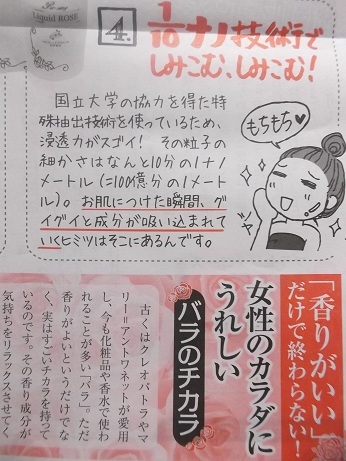 Liquid ROSE
4.
1/10ナノ技術で
しみこむ、しみこむ!
国立大学の協力を得た特
殊抽出技術を使っているため、
浸透力がスゴイ! その粒子の
細かさはなんと10分の1ナノ
メートル(=100億分の1メート
ル)。お肌につけた瞬間、グ
イグイと成分が吸い込まれて
いくヒミツはそこにあるんです。
もちもち
「香りがいい」
だけで終わらない!
女性のカラダに
うれしい
バラのチカラ
古くはクレオパトラやマ
リー=アントワネットが愛用
し、今も化粧品や香水で使わ
れることが多い「バラ」。ただ
香りがよいというだけでな
く、実はすごいチカラを持って
いるのです。その香り成分が
気持ちをリラックスさせてく